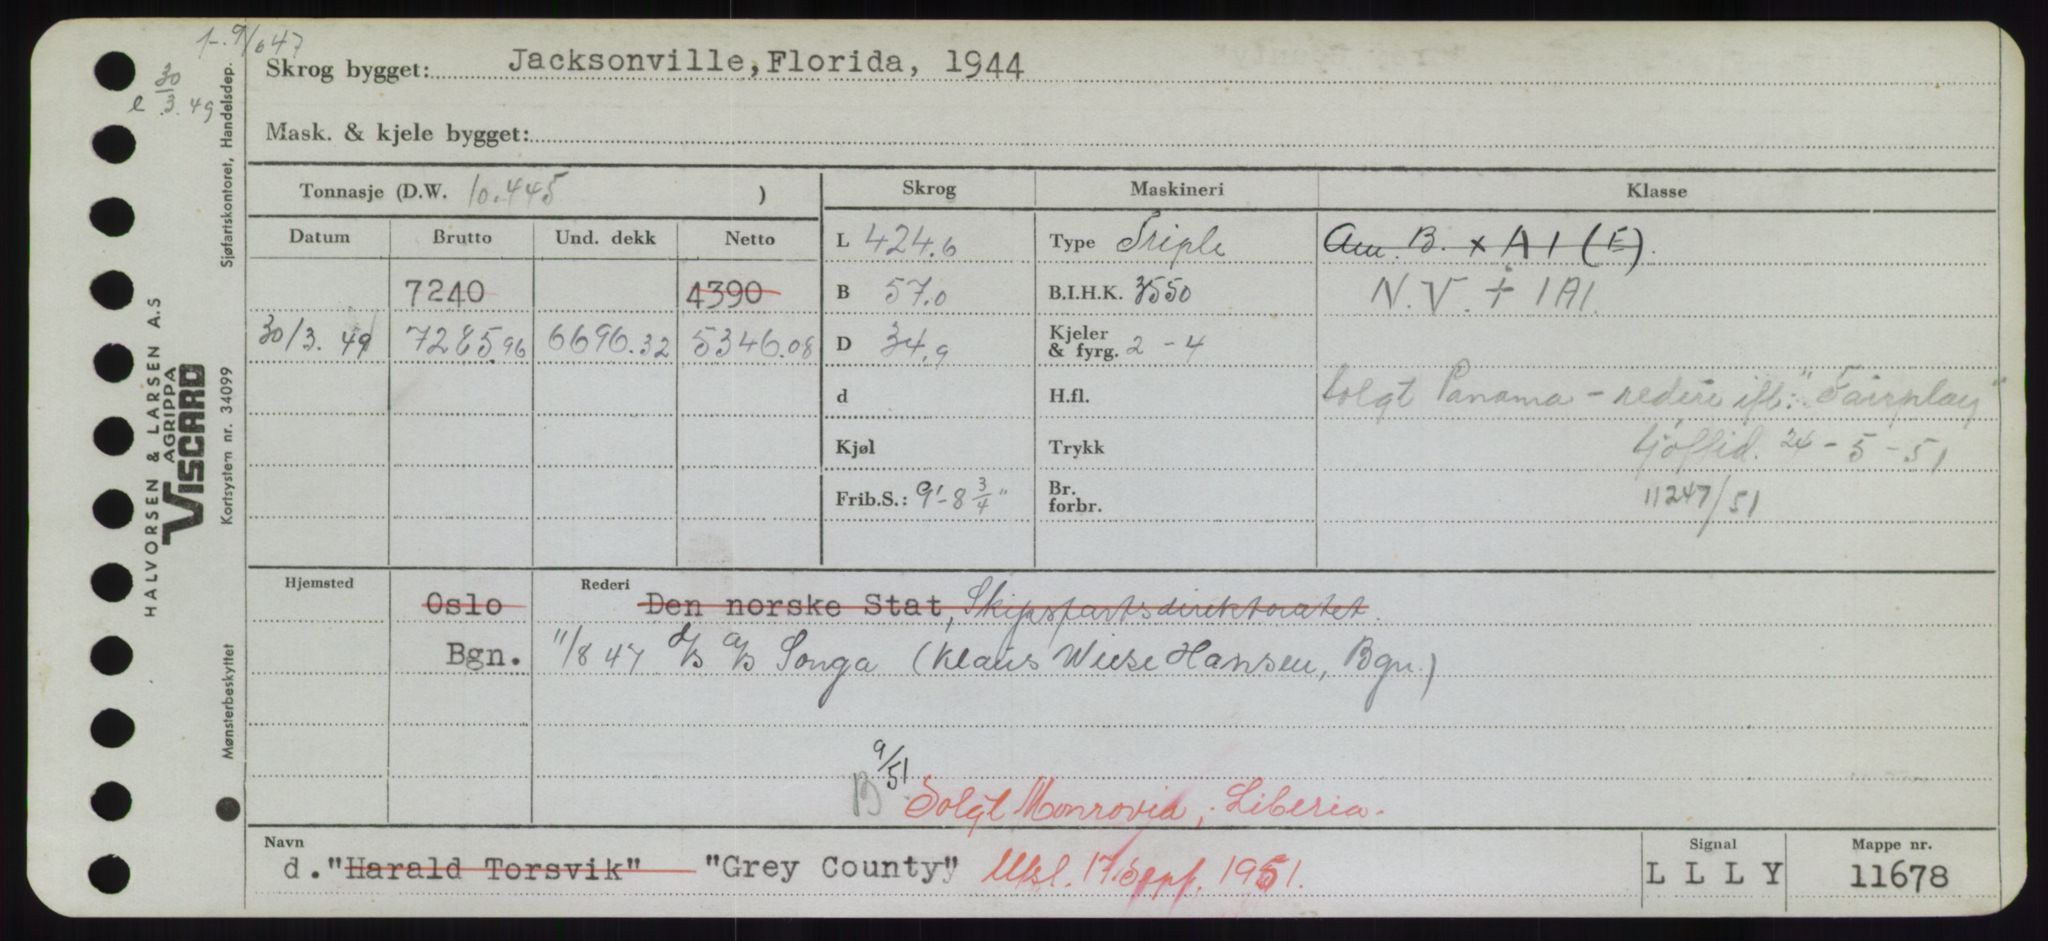 1-.9/647
30
e 3.49
Skrog bygget: Jacksonville, Florida, 1944
Mask. & kjele bygget:
Tonnasje (D.W. 10.445 )
Skrog
Maskineri
Klasse
Datum
Brutto
Und. dekk
Netto
L 424.6
Type Triple
Am. B. x A1 (E).
7240
4390
B 57.0
B.I.H.K. 3550
N.V. + 1A1.
30/3.49
7285.96
6696.32
5346.08
D 34.9
Kjeler & fyrg. 2 - 4
d
H.fl.
Solgt Panama - rederi ifl. "Fairplay"
Kjøl
Trykk
sjøftid. 24-5-51
Frib.S.: 9'-8 3/4"
Br. forbr.
11247/51
Hjemsted
Rederi
Oslo
Den norske Stat, Skipsfartsdirektoratet.
Bgn.
11/8 47 d/s a/s Songa (Klaus Wiese Hansen, Bgn.)
B 9/51 Solgt Monrovia, Liberia.
Navn
d. "Harald Torsvik" "Grey County" Utsl. 17 Sept. 1951.
Signal
L L L Y
Mappe nr.
11678
Sjøfartskontoret, Handelsdep.
Kortsystem nr. 34099
Mønsterbeskyttet
HALVORSEN & LARSEN A.S
AGRIPPA
VISCARD